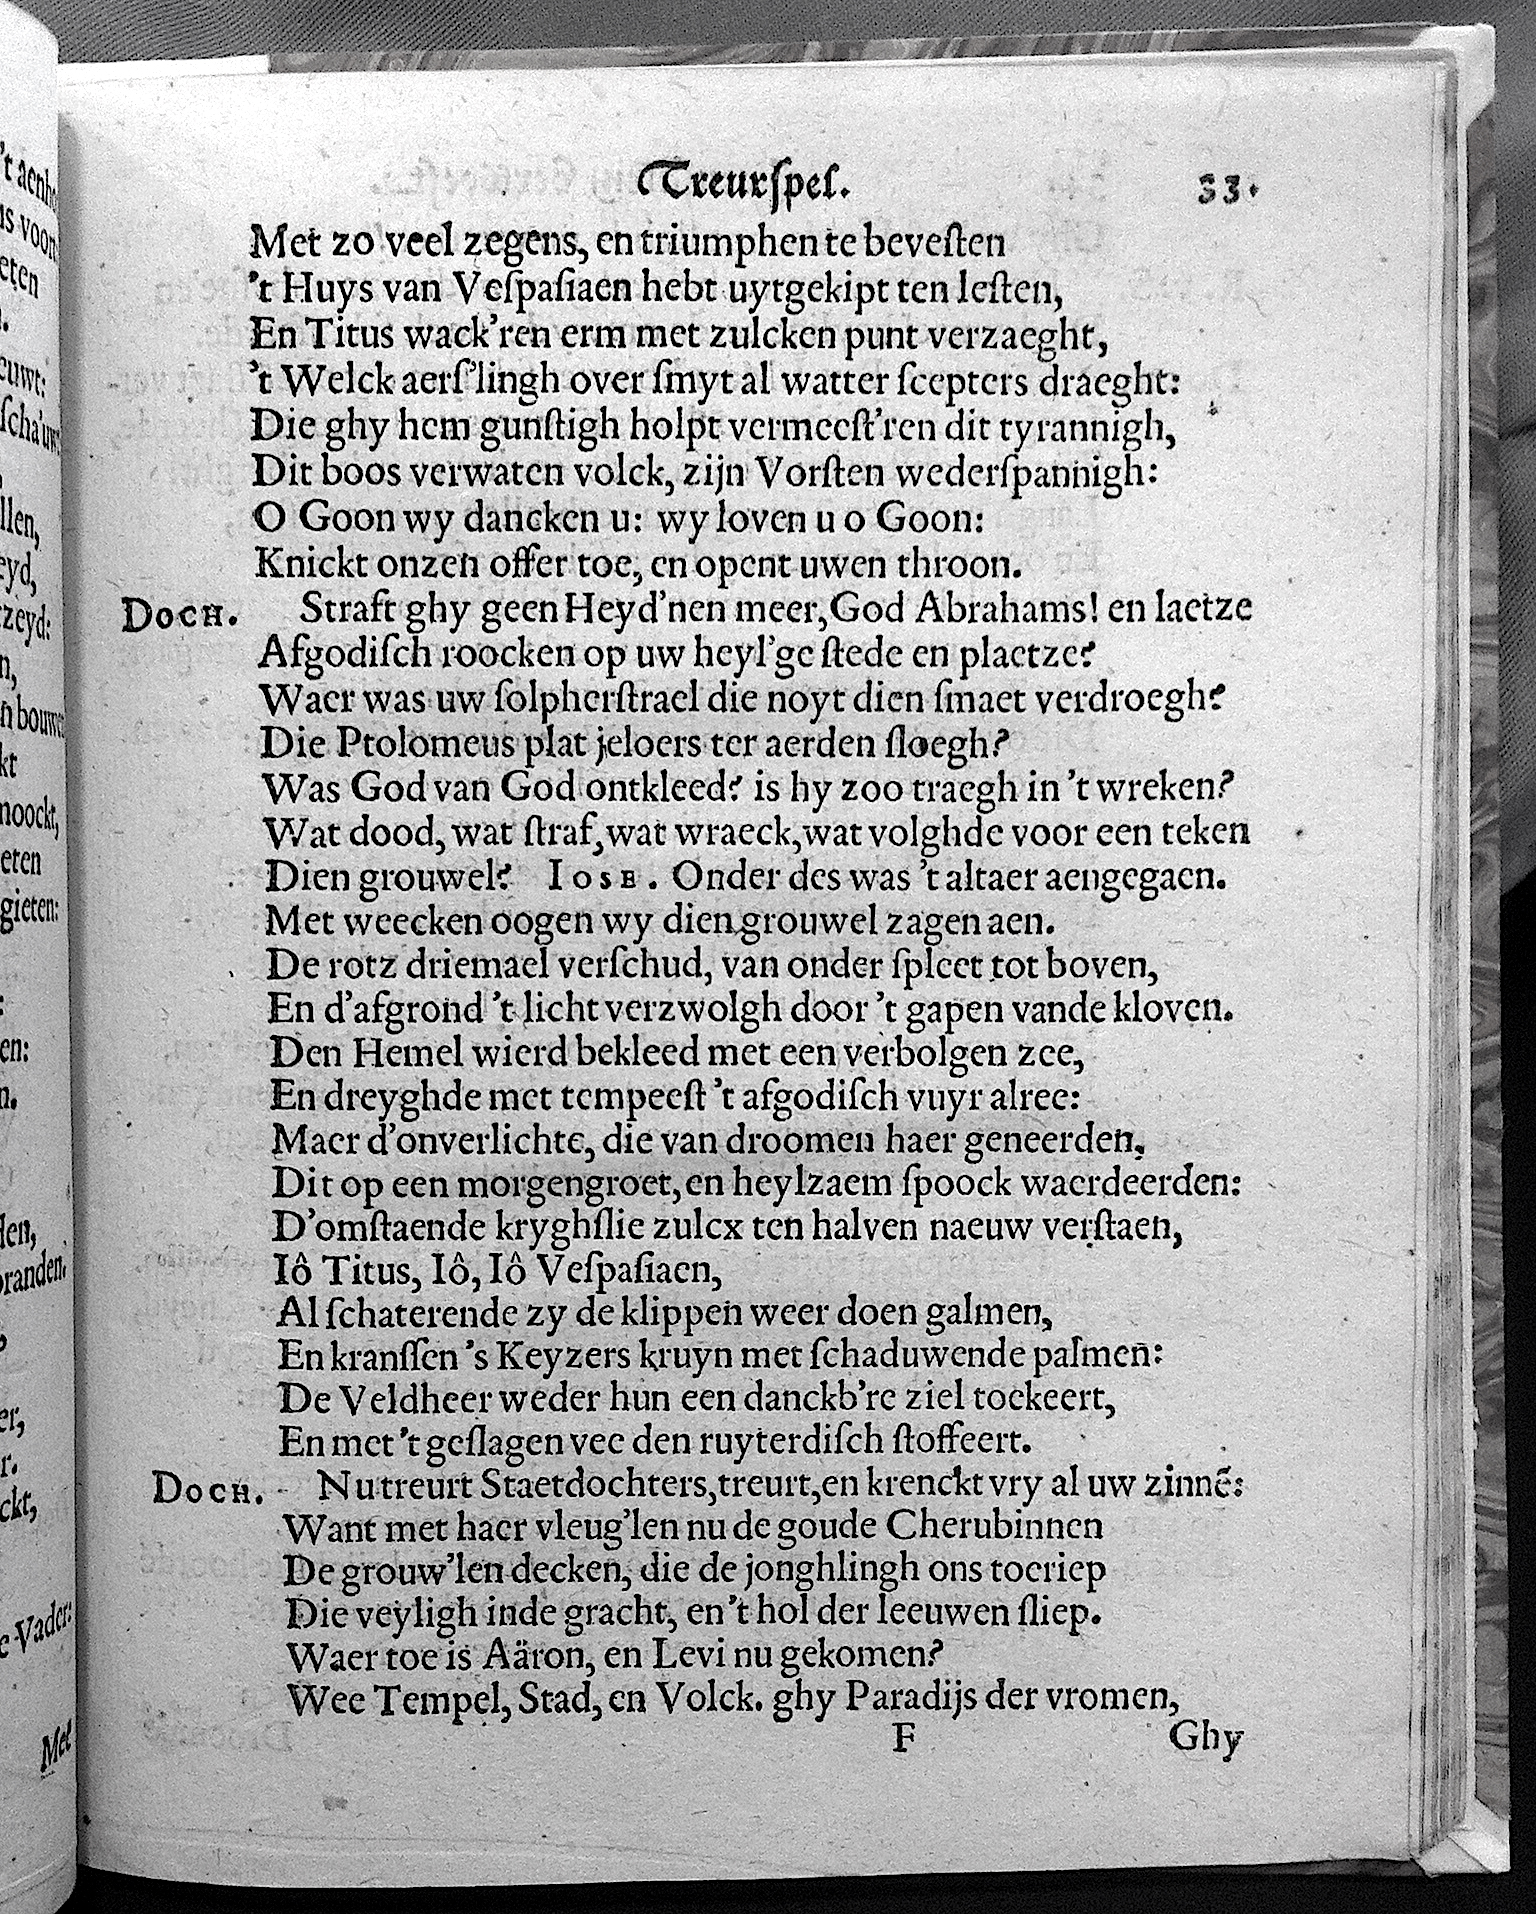 Treurſpel.
33.
Met zo veel zegens, en triumphen te beveſten
't Huys van Veſpaſiaen hebt uytgekipt ten leſten,
En Titus wack'ren erm met zulcken punt verzaeght,
't Welck aerſ'lingh over ſmyt al watter ſcepters draeght:
Die ghy hem gunſtigh holpt vermeeſt'ren dit tyrannigh,
Dit boos verwaten volck, zijn Vorſten wederſpannigh:
O Goon wy dancken u: wy loven u o Goon:
Knickt onzen offer toe, en opent uwen throon.
DOCH. Straft ghy geen Heyd'nen meer, God Abrahams! en laetze
Afgodiſch roocken op uw heyl'ge ſtede en plaetze?
Waer was uw ſolpherſtrael die noyt dien ſmaet verdroegh?
Die Ptolomeus plat jeloers ter aerden ſloegh?
Was God van God ontkleed? is hy zoo traegh in 't wreken?
Wat dood, wat ſtraf, wat wraeck, wat volghde voor een teken
Dien grouwel? IOSE. Onder des was 't altaer aengegaen.
Met weecken oogen wy dien grouwel zagen aen.
De rotz driemael verſchud, van onder ſpleet tot boven,
En d'afgrond 't licht verzwolgh door 't gapen vande kloven.
Den Hemel wierd bekleed met een verbolgen zee,
En dreyghde met tempeeſt 't afgodiſch vuyr alree:
Maer d'onverlichte, die van droomen haer geneerden,
Dit op een morgengroet, en heylzaem ſpoock waerdeerden:
D'omſtaende kryghſlie zulcx ten halven naeuw verſtaen,
Iô Titus, Iô, Iô Veſpaſiaen,
Al ſchaterende zy de klippen weer doen galmen,
En kranſſen 's Keyzers kruyn met ſchaduwende palmen:
De Veldheer weder hun een danckb're ziel toekeert,
En met 't geſlagen vee den ruyterdiſch ſtoffeert.
DOCH. Nu treurt Staetdochters, treurt, en krenckt vry al uw zinnē:
Want met haer vleug'len nu de goude Cherubinnen
De grouw'len decken, die de jonghlingh ons toeriep
Die veyligh inde gracht, en 't hol der leeuwen ſliep.
Waer toe is Aäron, en Levi nu gekomen?
Wee Tempel, Stad, en Volck. ghy Paradijs der vromen,
F
Ghy